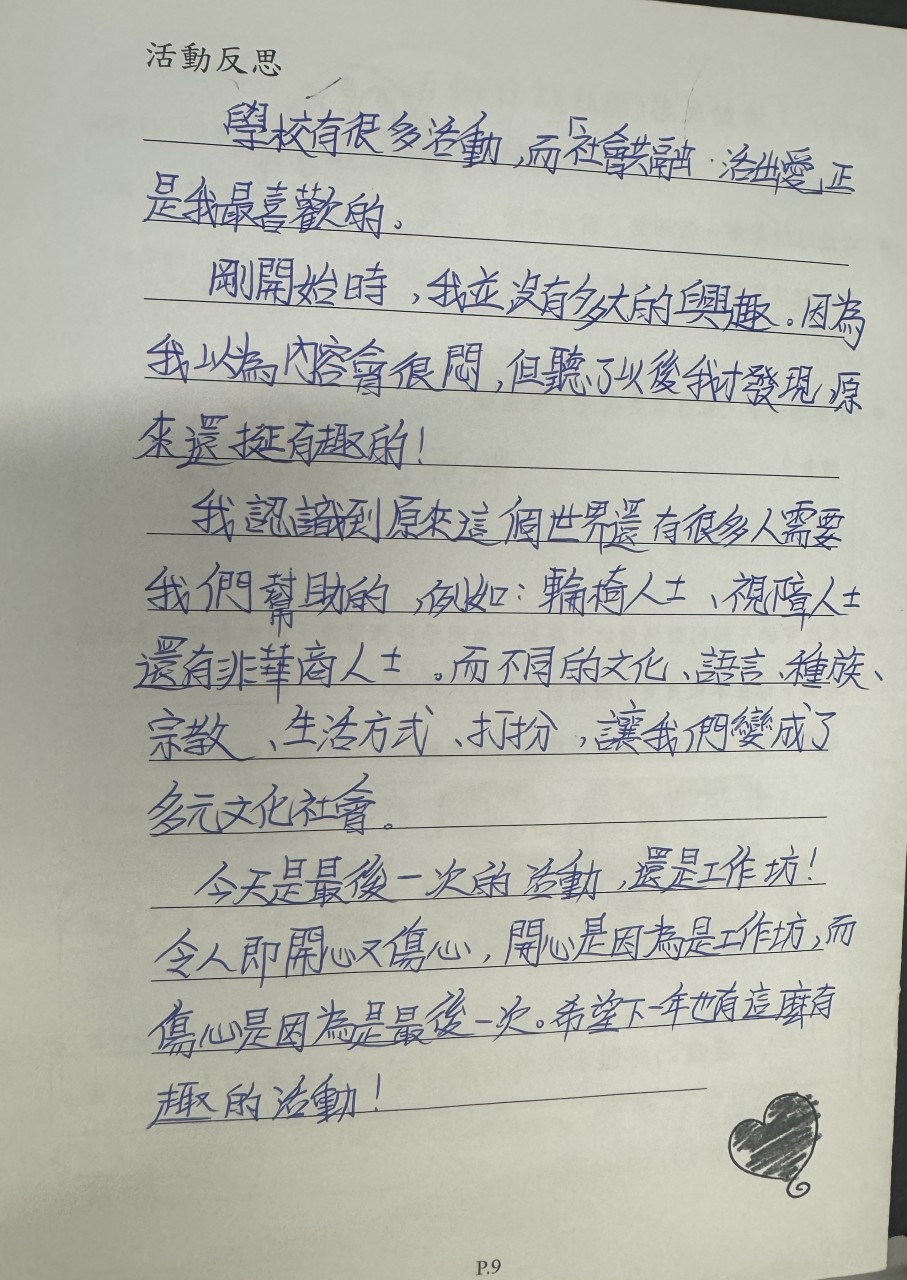 活動反思
學校有很多活動,而「社會共融·活出愛」正
是我最喜歡的。
剛開始時,我並沒有多大的興趣。因為
我以為內容會很悶,但聽了以後我才發現原
來還挺有趣的!
我認識到原來這個世界還有很多人需要
我們幫助的,例如:輪椅人士、視障人士
還有非華裔人士。而不同的文化、語言、種族、
宗教、生活方式、打扮,讓我們變成了
多元文化社會。
今天是最後一次的活動,還是工作坊!
令人即開心又傷心,開心是因為是工作坊,而
傷心是因為是最後一次。希望下一年也有這麼有
趣的活動!
P.9